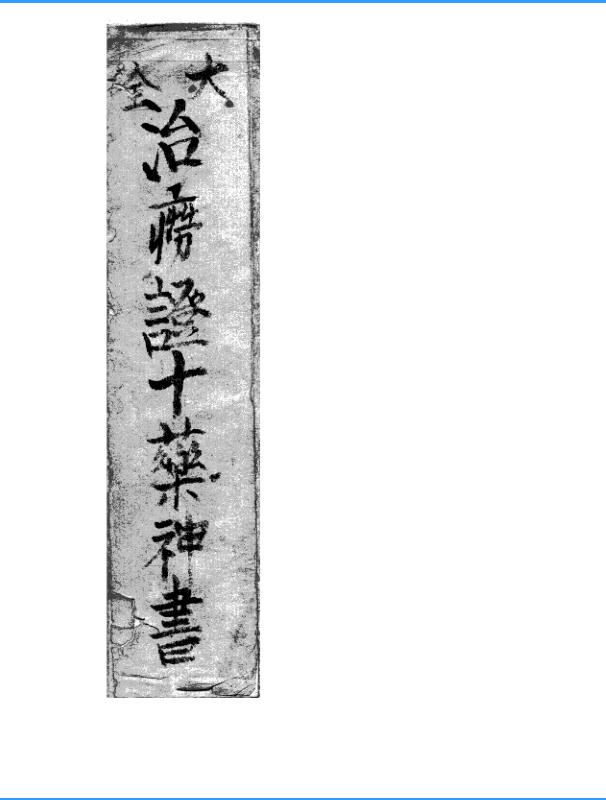 大全
治癆證十藥神書